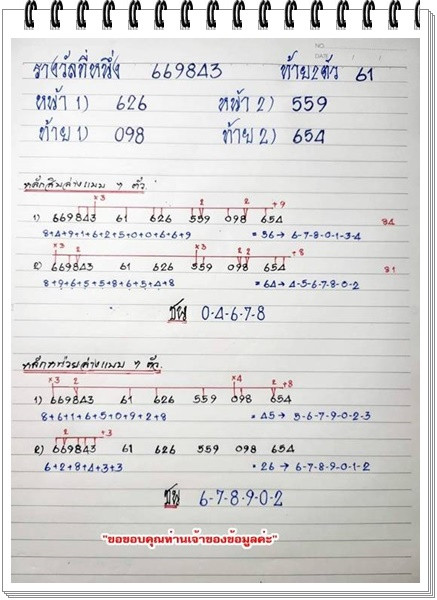 NO.
DATE
รางวัลที่หนึ่ง 669843 ท้าย2ตัว 61
หน้า 1) 626 หน้า 2) 559
ท้าย 1) 098 ท้าย 2) 654
หลักสิบล่างแบบ 7 ตัว
×3 2 2 +9
1) 669843 61 626 559 098 654 84
8+4+9+1+6+2+5+0+0+6+6+9 = 56 → 6-7-8-0-1-3-4
×3 2 ×3 2 +8
2) 669843 61 626 559 098 654 81
8+9+6+5+5+8+6+5+4+8 = 64 → 4-5-6-7-8-0-2
ชน 0-4-6-7-8
หลักหน่วยล่างแบบ 7 ตัว
×3 2 ×4 2 +8
1) 669843 61 626 559 098 654
8+6+1+6+5+0+9+2+8 = 45 → 5-6-7-9-0-2-3
2 +3
2) 669843 61 626 559 098 654
6+2+8+4+3+3 = 26 → 6-7-8-9-0-1-2
ชน 6-7-8-9-0-2
"ขอขอบคุณท่านเจ้าของข้อมูลค่ะ"